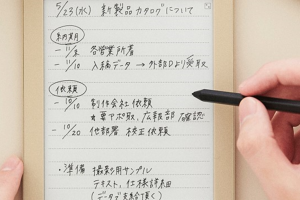 5/23(水) 新製品カタログについて
納期
- 11/末 各営業所着
- 11/10 入稿データ → 外部Dより受取
依頼
- 10/10 制作会社依頼
★要アポ取, 広報部 確認
- 10/20 他部署 校正依頼
・準備 撮影用サンプル
テキスト, 仕様詳細
(データで支給頂く)